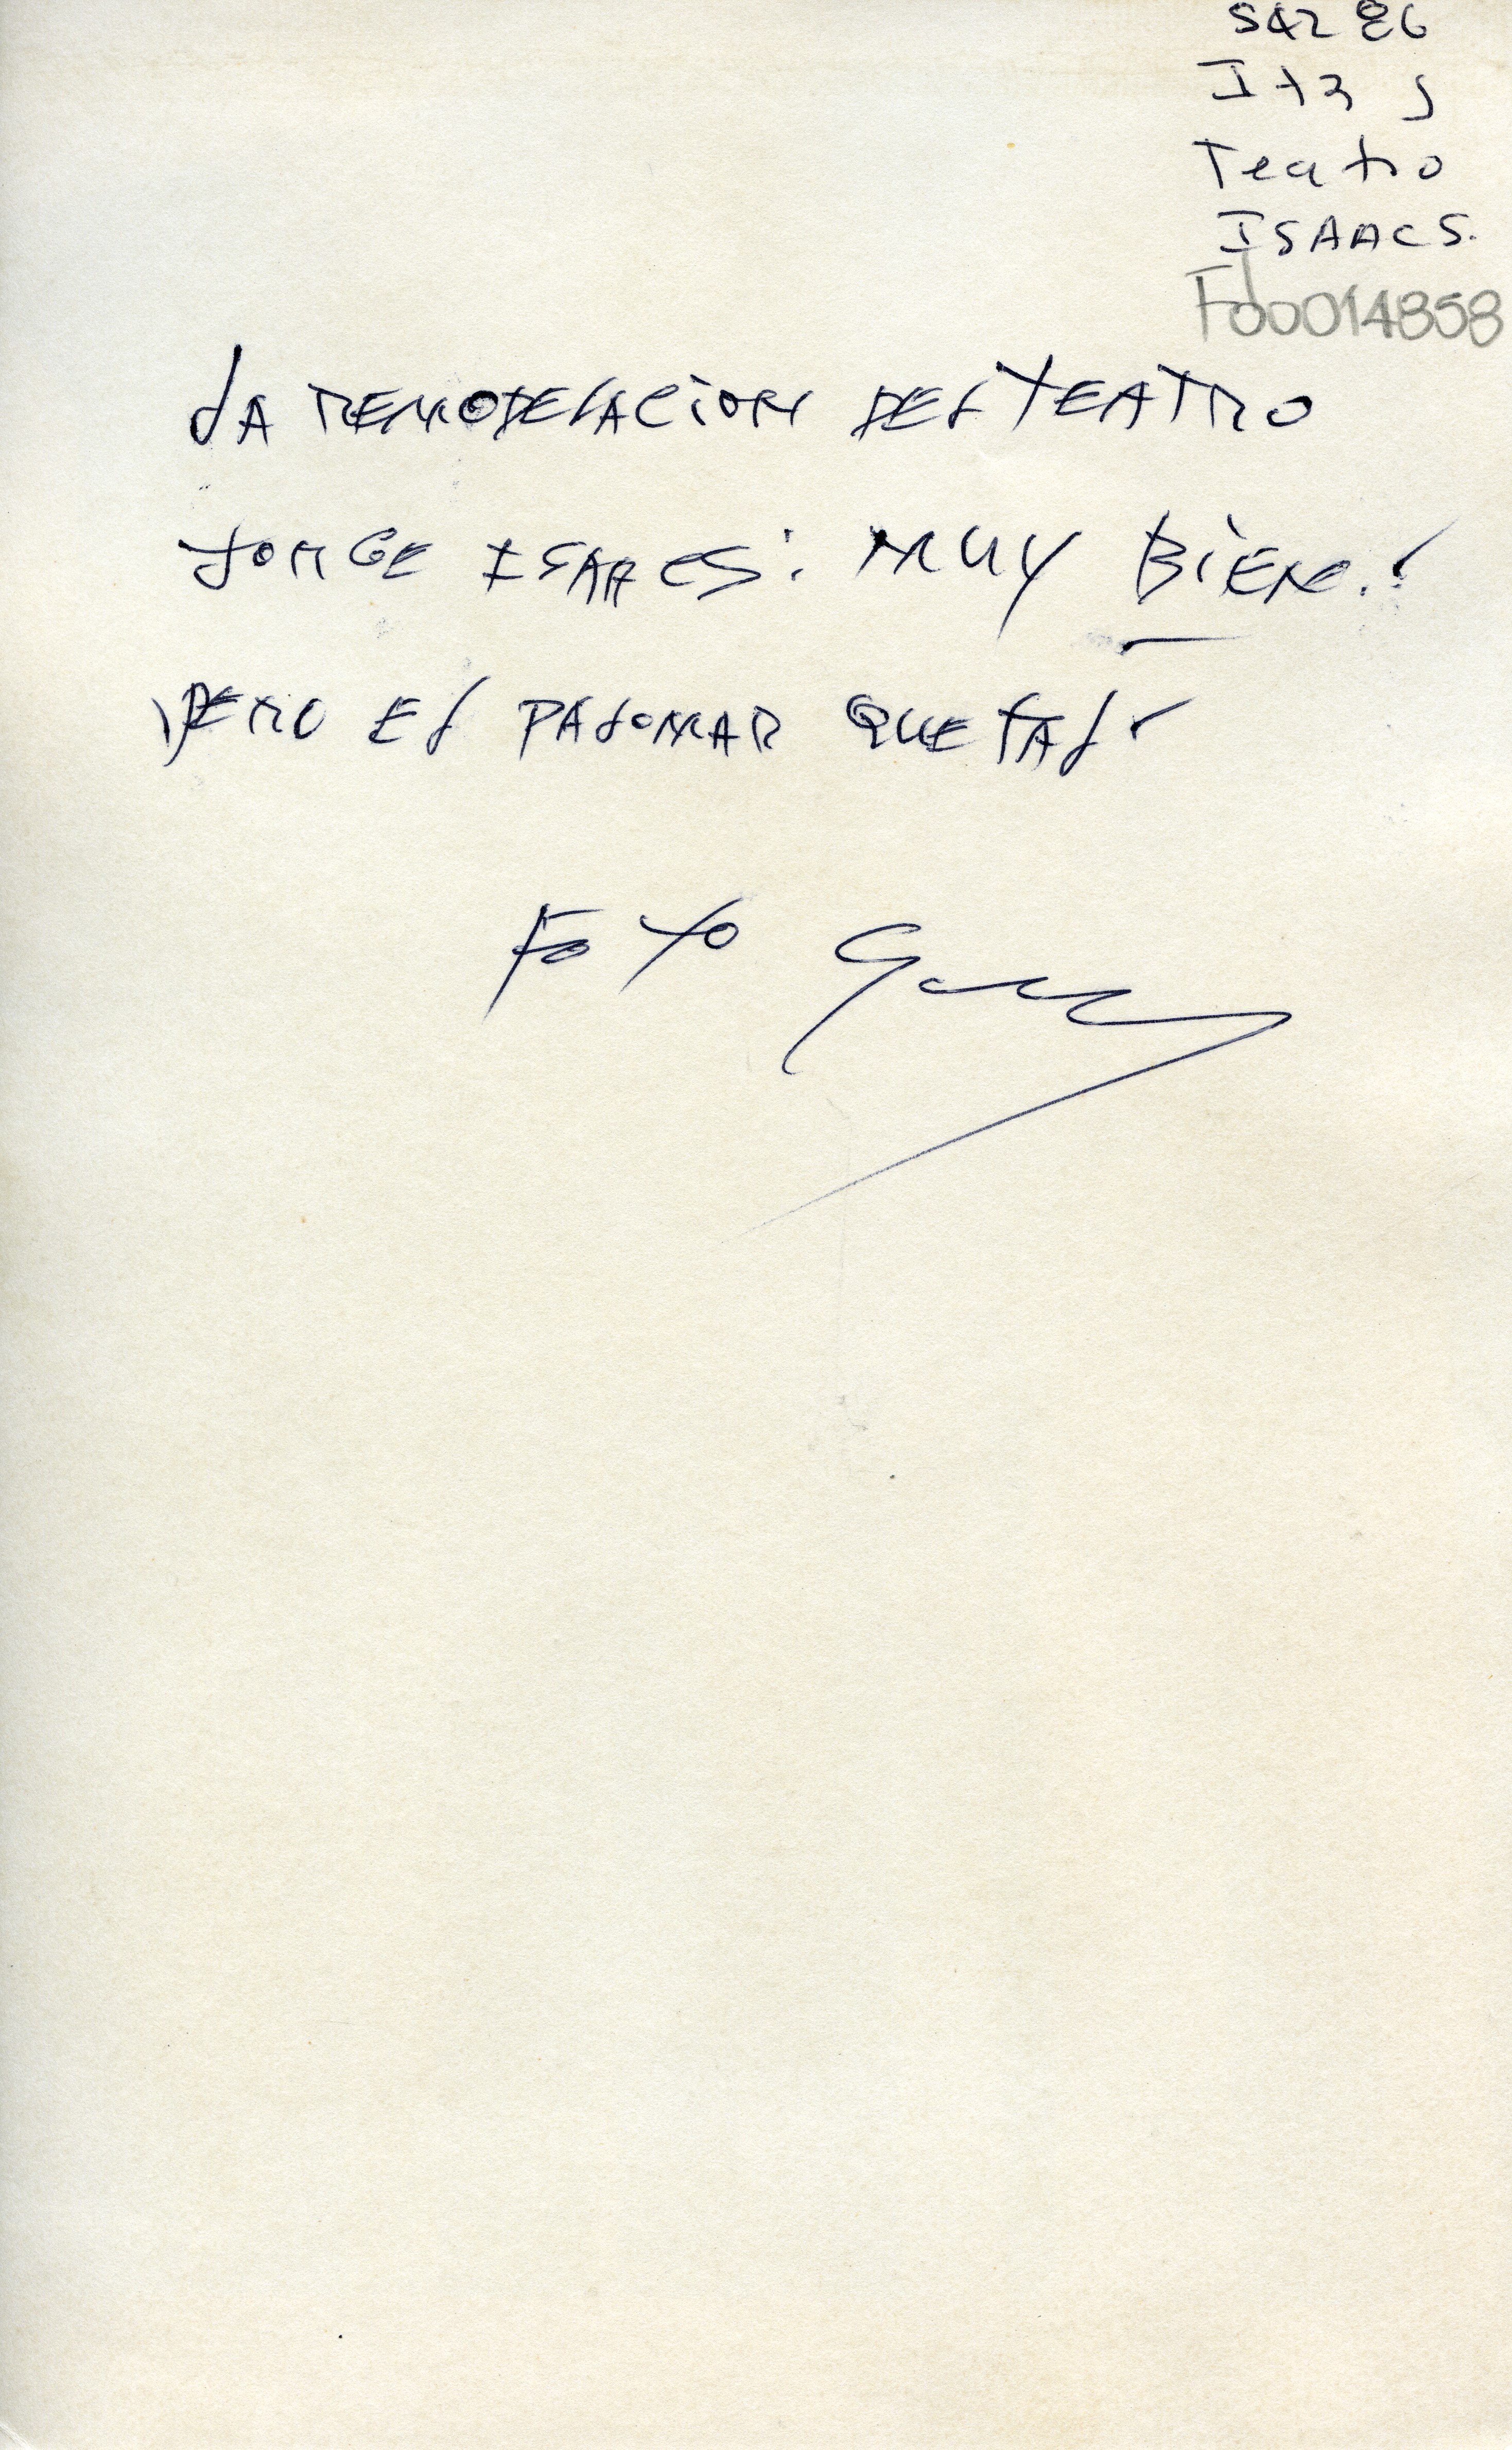 S42 86
I + 3 J
Teatro
ISAACS.
Fd0014858
LA REMODELACION DEL TEATRO
JORGE ISAACS: MUY BIEN.!
PERO EL PALOMAR QUE TAL?
FOTO